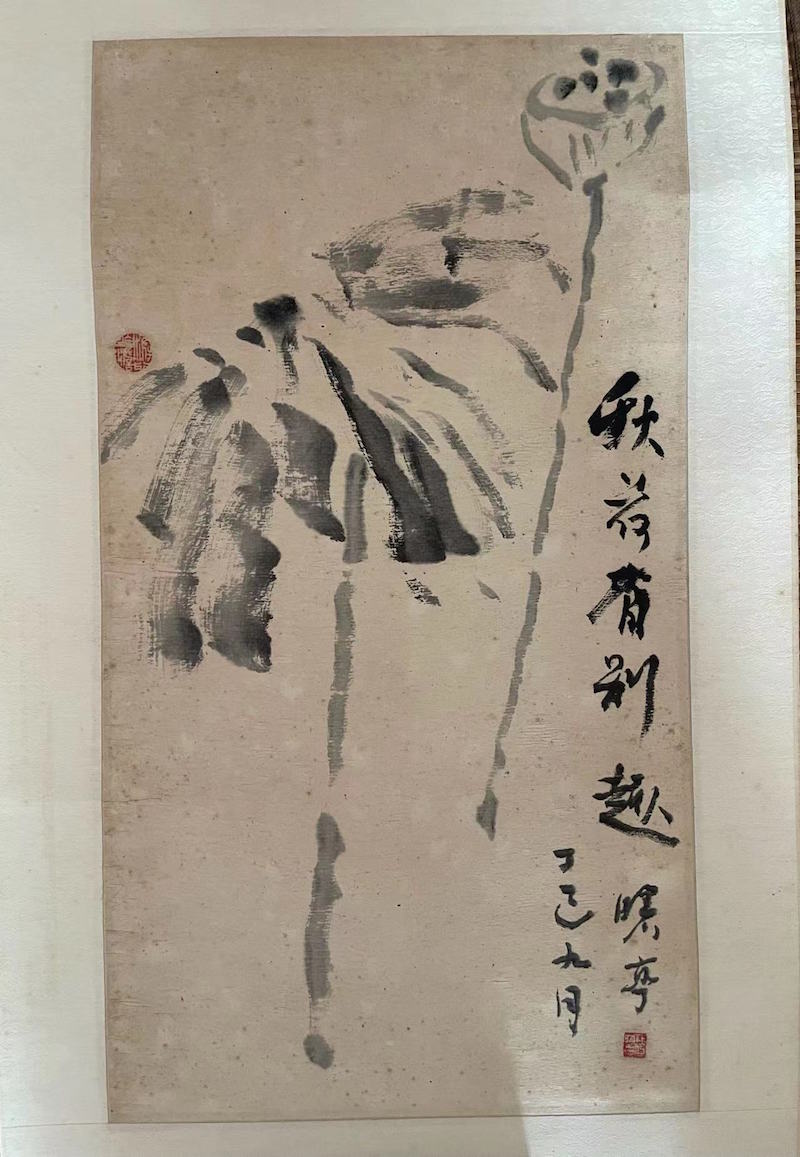 秋荷有别趣
晴亭
丁巳九月